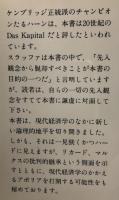 ケンブリッジ正統派のチャンピオ
ンたるハーンは、本書は20世紀の
Das Kapital だと評したといわれ
ています。
スラッファは本書の中で、「先入
観念から脱却すべきことが本書の
目的の一つだ」と言明しています
が、読者は、自らの一切の先入観
念をすてて本書に謙虚に対面して
下さい。
本書は、現代経済学のなかに新し
い論理的地平を切り開きました。
しかも、それは一見開くかのハー
ドに見えますが、ケインズ、マル
クスの批判的継承という側面を示
すとともに、現代経済学のかかえ
るアポリアを打開する可能性をも
秘めております。